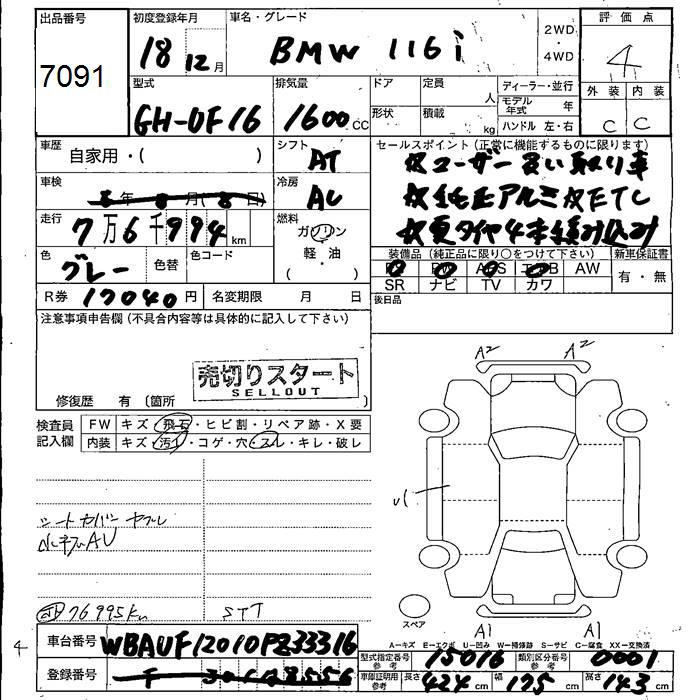 出品番号 初度登録年月 車名・グレード 2WD・4WD 評価点
7091 18年12月 BMW 116i 4
型式 排気量 ドア 定員 人 ディーラー・並行 外装 内装
GH-UF16 1600cc 形状 積載 kg モデル年式 年 ハンドル 左・右 C C
車歴 自家用・( ) シフト AT セールスポイント (正常に機能するものに限ります)
☆ユーザー買い取り車
車検 年 月 ( 日) 冷房 AC
☆純正アルミ☆ETC
走行 7万6千994km 燃料 ガソリン・軽油 ( )
☆夏タイヤ4本積み込み
色 グレー 色替 色コード
装備品 (純正品に限り○をつけて下さい) 新車保証書
AW 有・無
SR ナビ TV カワ
R券 17040円 名変期限 月 日
後日品
注意事項申告欄 (不具合内容等は具体的に記入して下さい)
売切りスタート
SELLOUT
修復歴 有 (箇所
A2 A2
検査員記入欄 FW キズ・飛石・ヒビ割・リペア跡・X要
内装 キズ・汚れ・コゲ・穴・スレ・キレ・破レ
シートカバーヤブレ
76995km STT
スペア
A1 A1
A-キズ E-エクボ U-凹み W-補修跡 S-サビ C-腐食 XX-交換済
4
車台番号 WBAUF12010PZ33316
型式指定番号 参考 15016 類別区分番号 参考 0001
登録番号
車庫証明用 参考 長さ 424cm 幅 175cm 高さ 143cm